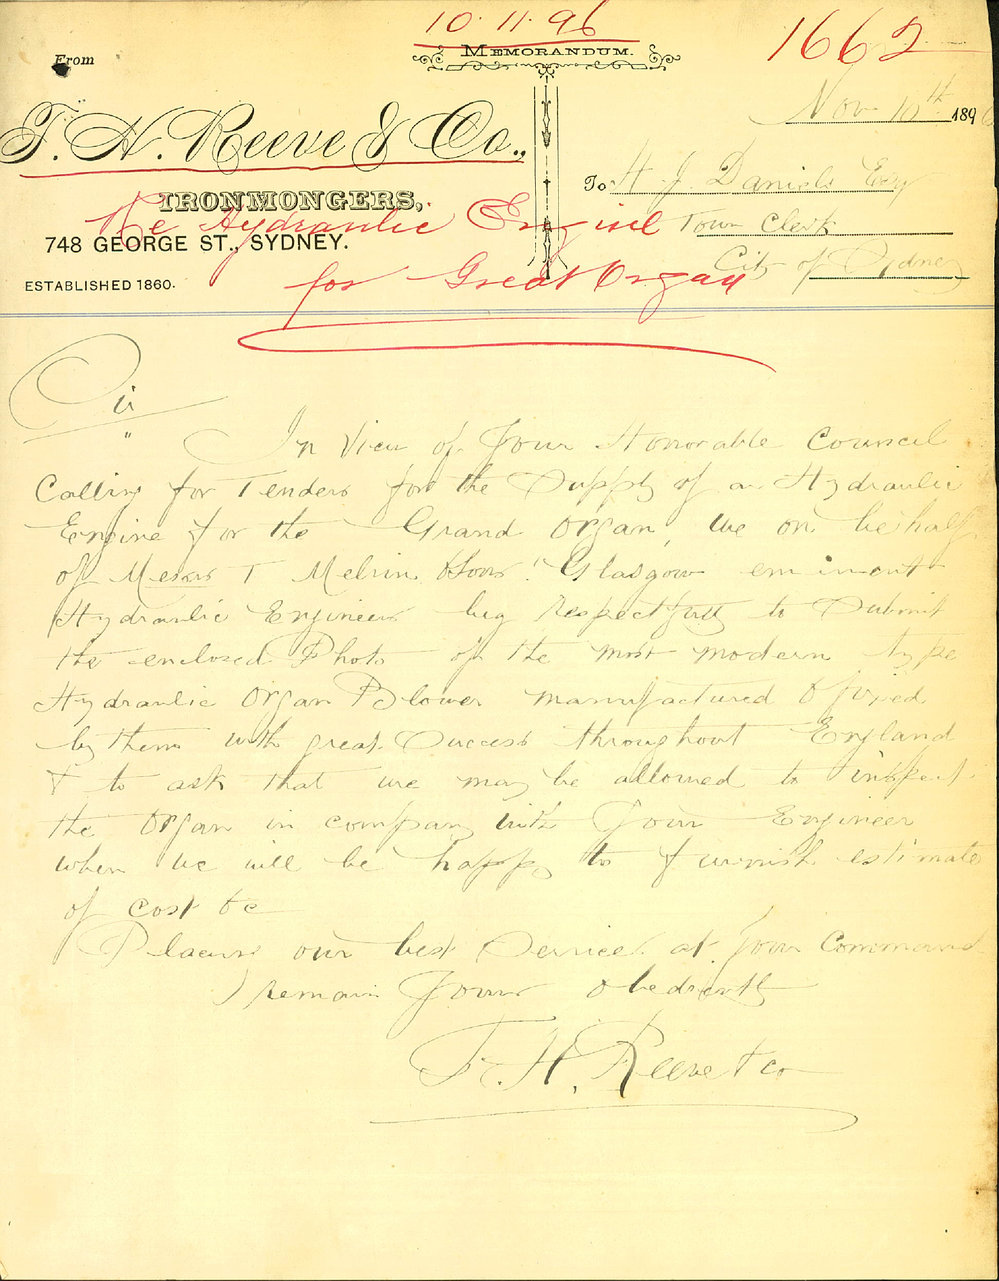 10.11.96
MEMORANDUM.
1662
From
Nov 10th 1896
T. H. Reeve & Co.,
To H. J. Daniels Esq
IRONMONGERS,
Re Hydraulic Engine Town Clerk
748 GEORGE ST., SYDNEY.
City of Sydney
for Great Organ
ESTABLISHED 1860.
Sir
In View of Your Honorable Council
Calling for Tenders for the Supply of a Hydraulic
Engine for the Grand Organ, we on behalf
of Messrs T Melvin & Sons Glasgow eminent
Hydraulic Engineers beg respectfully to Submit
the enclosed Photo of the most modern type
Hydraulic Organ Blower manufactured & fixed
by them with great Success throughout England
& to ask that we may be allowed to inspect
the Organ in company with Your Engineer
when we will be happy to furnish estimate
of cost &c
Placing our best Services at Your Command
I remain Yours obediently
T. H. Reeve & Co